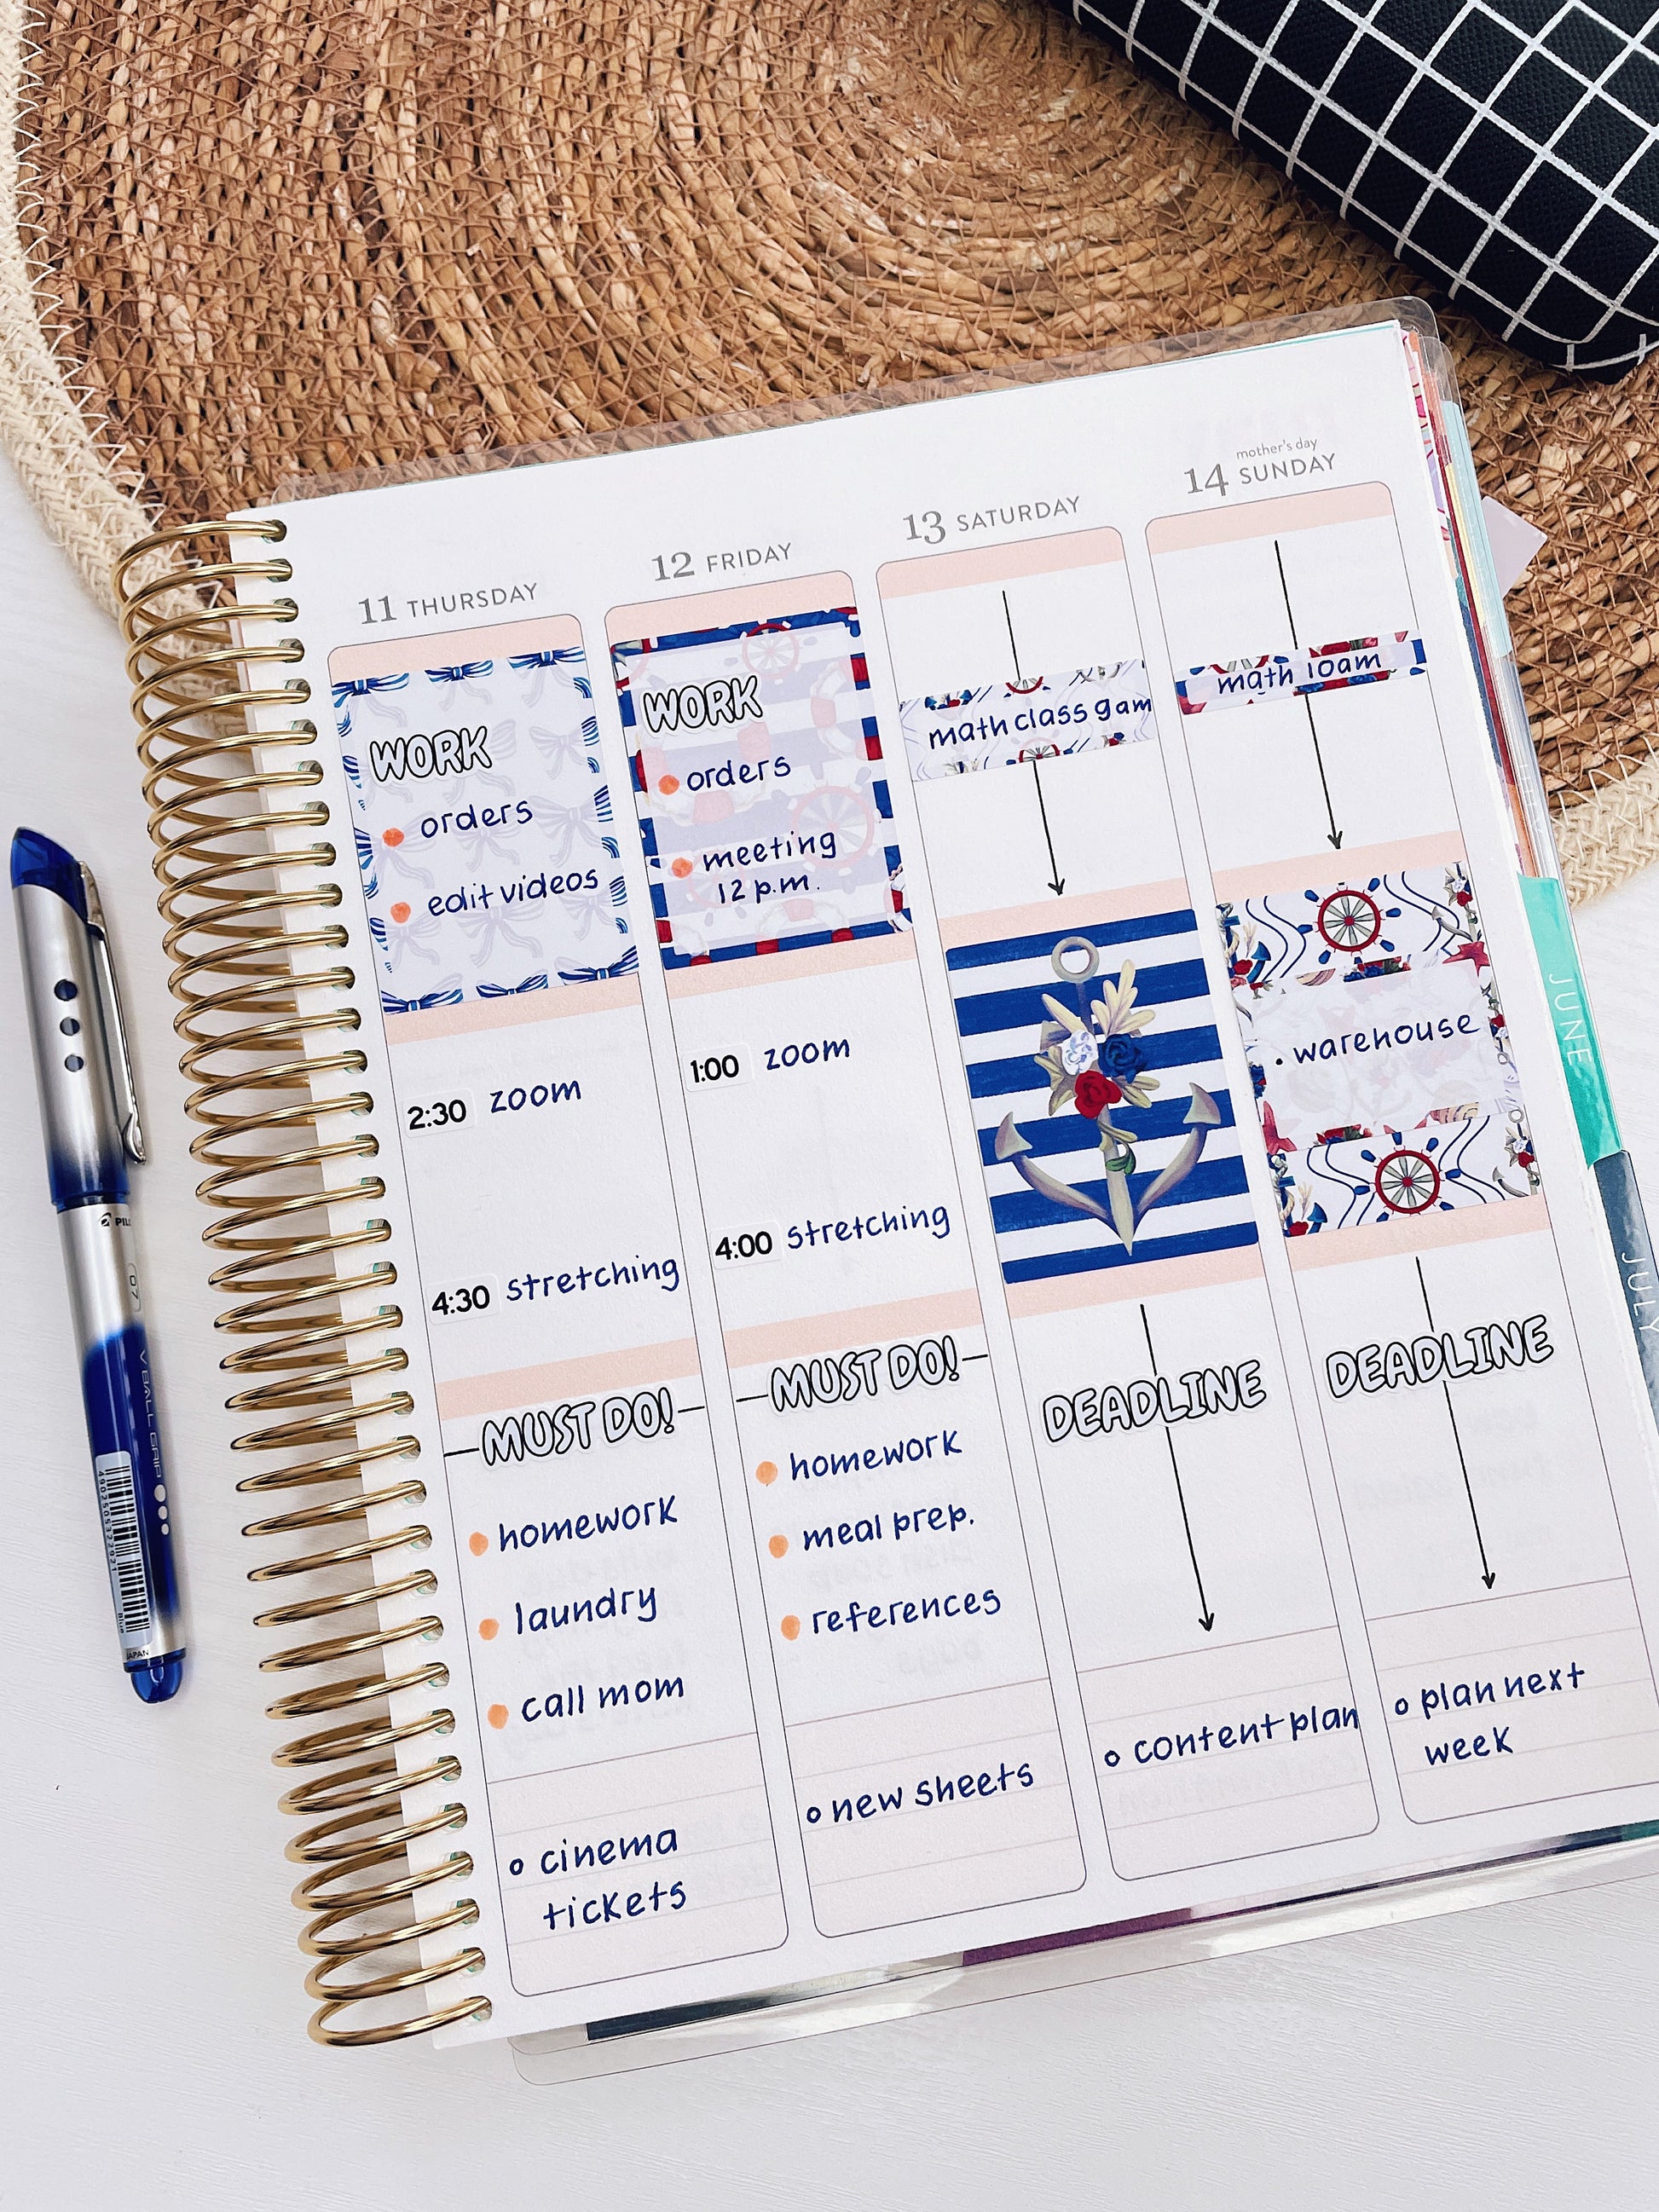 11 THURSDAY
WORK
orders
edit videos
2:30 zoom
4:30 stretching
MUST DO!
homework
laundry
call mom
cinema
tickets
12 FRIDAY
WORK
orders
meeting
12 p.m.
1:00 zoom
4:00 stretching
MUST DO!
homework
meal prep.
references
new sheets
13 SATURDAY
math class 9am
DEADLINE
content plan
mother's day
14 SUNDAY
math 10am
warehouse
DEADLINE
plan next
week
JUNE
JULY
07
V BALL GRIP
4902505379271
Blue
JAPAN